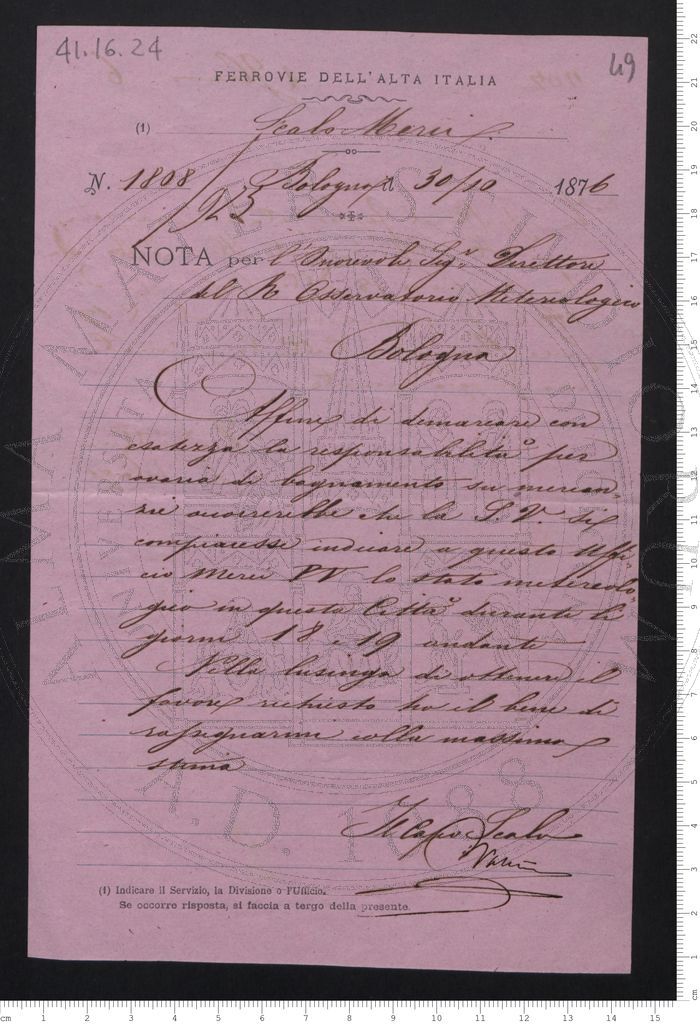 41.16.24
49
FERROVIE DELL'ALTA ITALIA
(1) Scalo Merci
N. 1808 Bologna, il 30/10 1876
NOTA per l'Onorevole Sigr Direttore
del R Osservatorio Metereologico
Bologna
Affine di demarcare con
esatezza la responsabilità per
avaria di bagnamento su mercan-
zie occorrerebbe che la S. V. si
compiacesse indicare a questo Uffi-
cio Merci PV lo stato metereolo-
gico in questa Città durante li
giorni 18 e 19 andante
Nella lusinga di ottenere il
favore richiesto ho il bene di
rassegnarmi colla massima
stima
Il Capo Scalo
(1) Indicare il Servizio, la Divisione o l'Ufficio.
Se occorre risposta, si faccia a tergo della presente.
ALMA MATER STUDIORUM
A.D. 1088